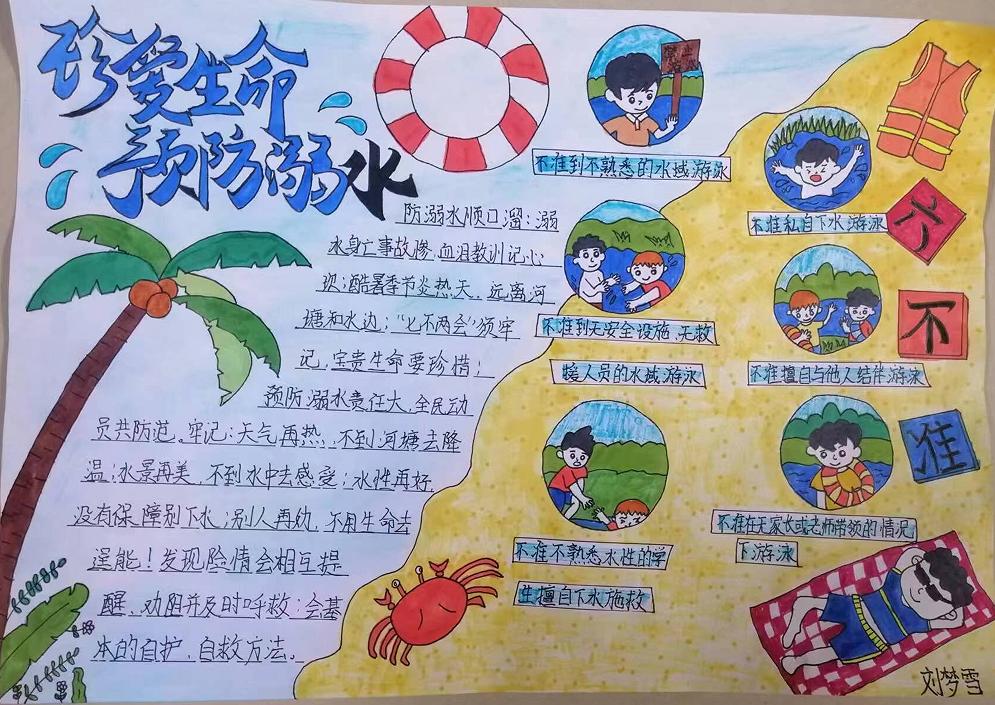 珍爱生命
预防溺水
防溺水顺口溜:溺
水身亡事故惨,血泪教训记心
坎;酷暑季节炎热天,远离河
塘和水边;“七不两会”须牢
记,宝贵生命要珍惜;
预防溺水责任大,全民动
员共防范。牢记:天气再热,不到河塘去降
温;水景再美,不到水中去感受;水性再好,
没有保障别下水;别人再劝,不用生命去
逞能!发现险情会相互提
醒,劝阻并及时呼救;会基
本的自护、自救方法。
禁止
不准到不熟悉的水域游泳
不准私自下水游泳
不准到无安全设施、无救
援人员的水域游泳
不准擅自与他人结伴游泳
不准不熟悉水性的学
生擅自下水施救
不准在无家长或老师带领的情况
下游泳
六
不
准
刘梦雪